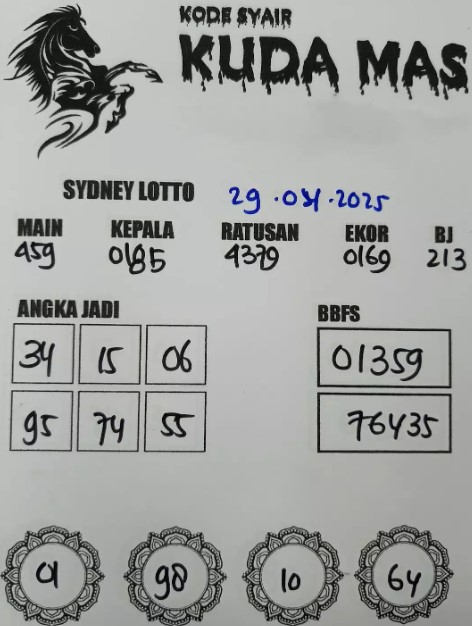 KODE SYAIR
KUDA MAS
SYDNEY LOTTO 29.04.2025
MAIN KEPALA RATUSAN EKOR BJ
459 0185 4379 0169 213
ANGKA JADI BBFS
34 15 06 01359
95 74 55 76435
01 98 10 64